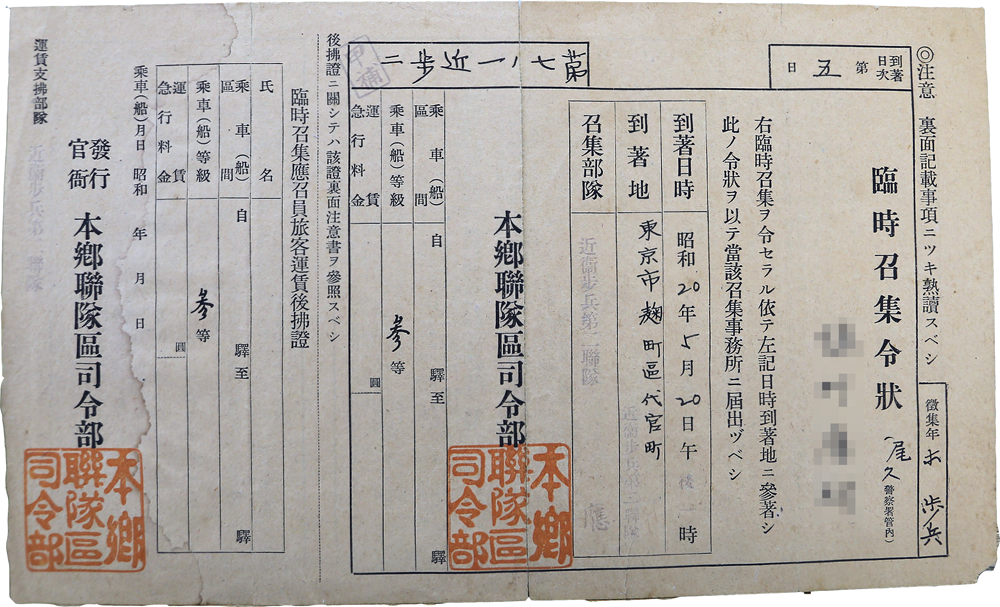 ◎注意　裏面記載事項ニツキ熟讀スベシ
徴集年　歩兵
到著日次　第五日
臨時召集令狀
（尾久警察署管內）
右臨時召集ヲ令セラル依テ左記日時到著地ニ參著シ
此ノ令狀ヲ以テ當該召集事務所ニ屆出ヅベシ
到著日時　昭和20年5月20日午後　時
到著地　東京市麹町區代官町
召集部隊　近衞步兵第二聯隊
第七八一近步二
本鄕聯隊區司令部
本鄕聯隊區司令部
乘車(船)區間　自　驛至　驛
乘車(船)等級　參等
運賃急行料金　圓
後拂證ニ關シテハ該證裏面注意書ヲ參照スベシ
臨時召集應召員旅客運賃後拂證
氏名
乘車(船)區間　自　驛至　驛
乘車(船)等級　參等
運賃急行料金　圓
乘車(船)月日　昭和　年　月　日
發行官衙　本鄕聯隊區司令部
本鄕聯隊區司令部
運賃支拂部隊